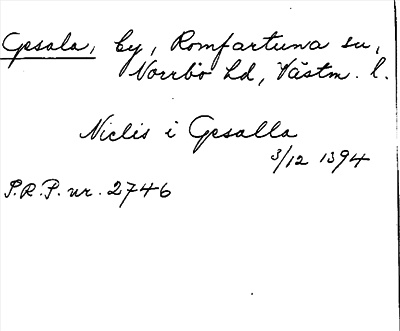 Gesala, by, Romfartuna sn,
Norrbo hd, Västm. l.
Niclis i Gesalla
3/12 1394
S.R.P. nr. 2746